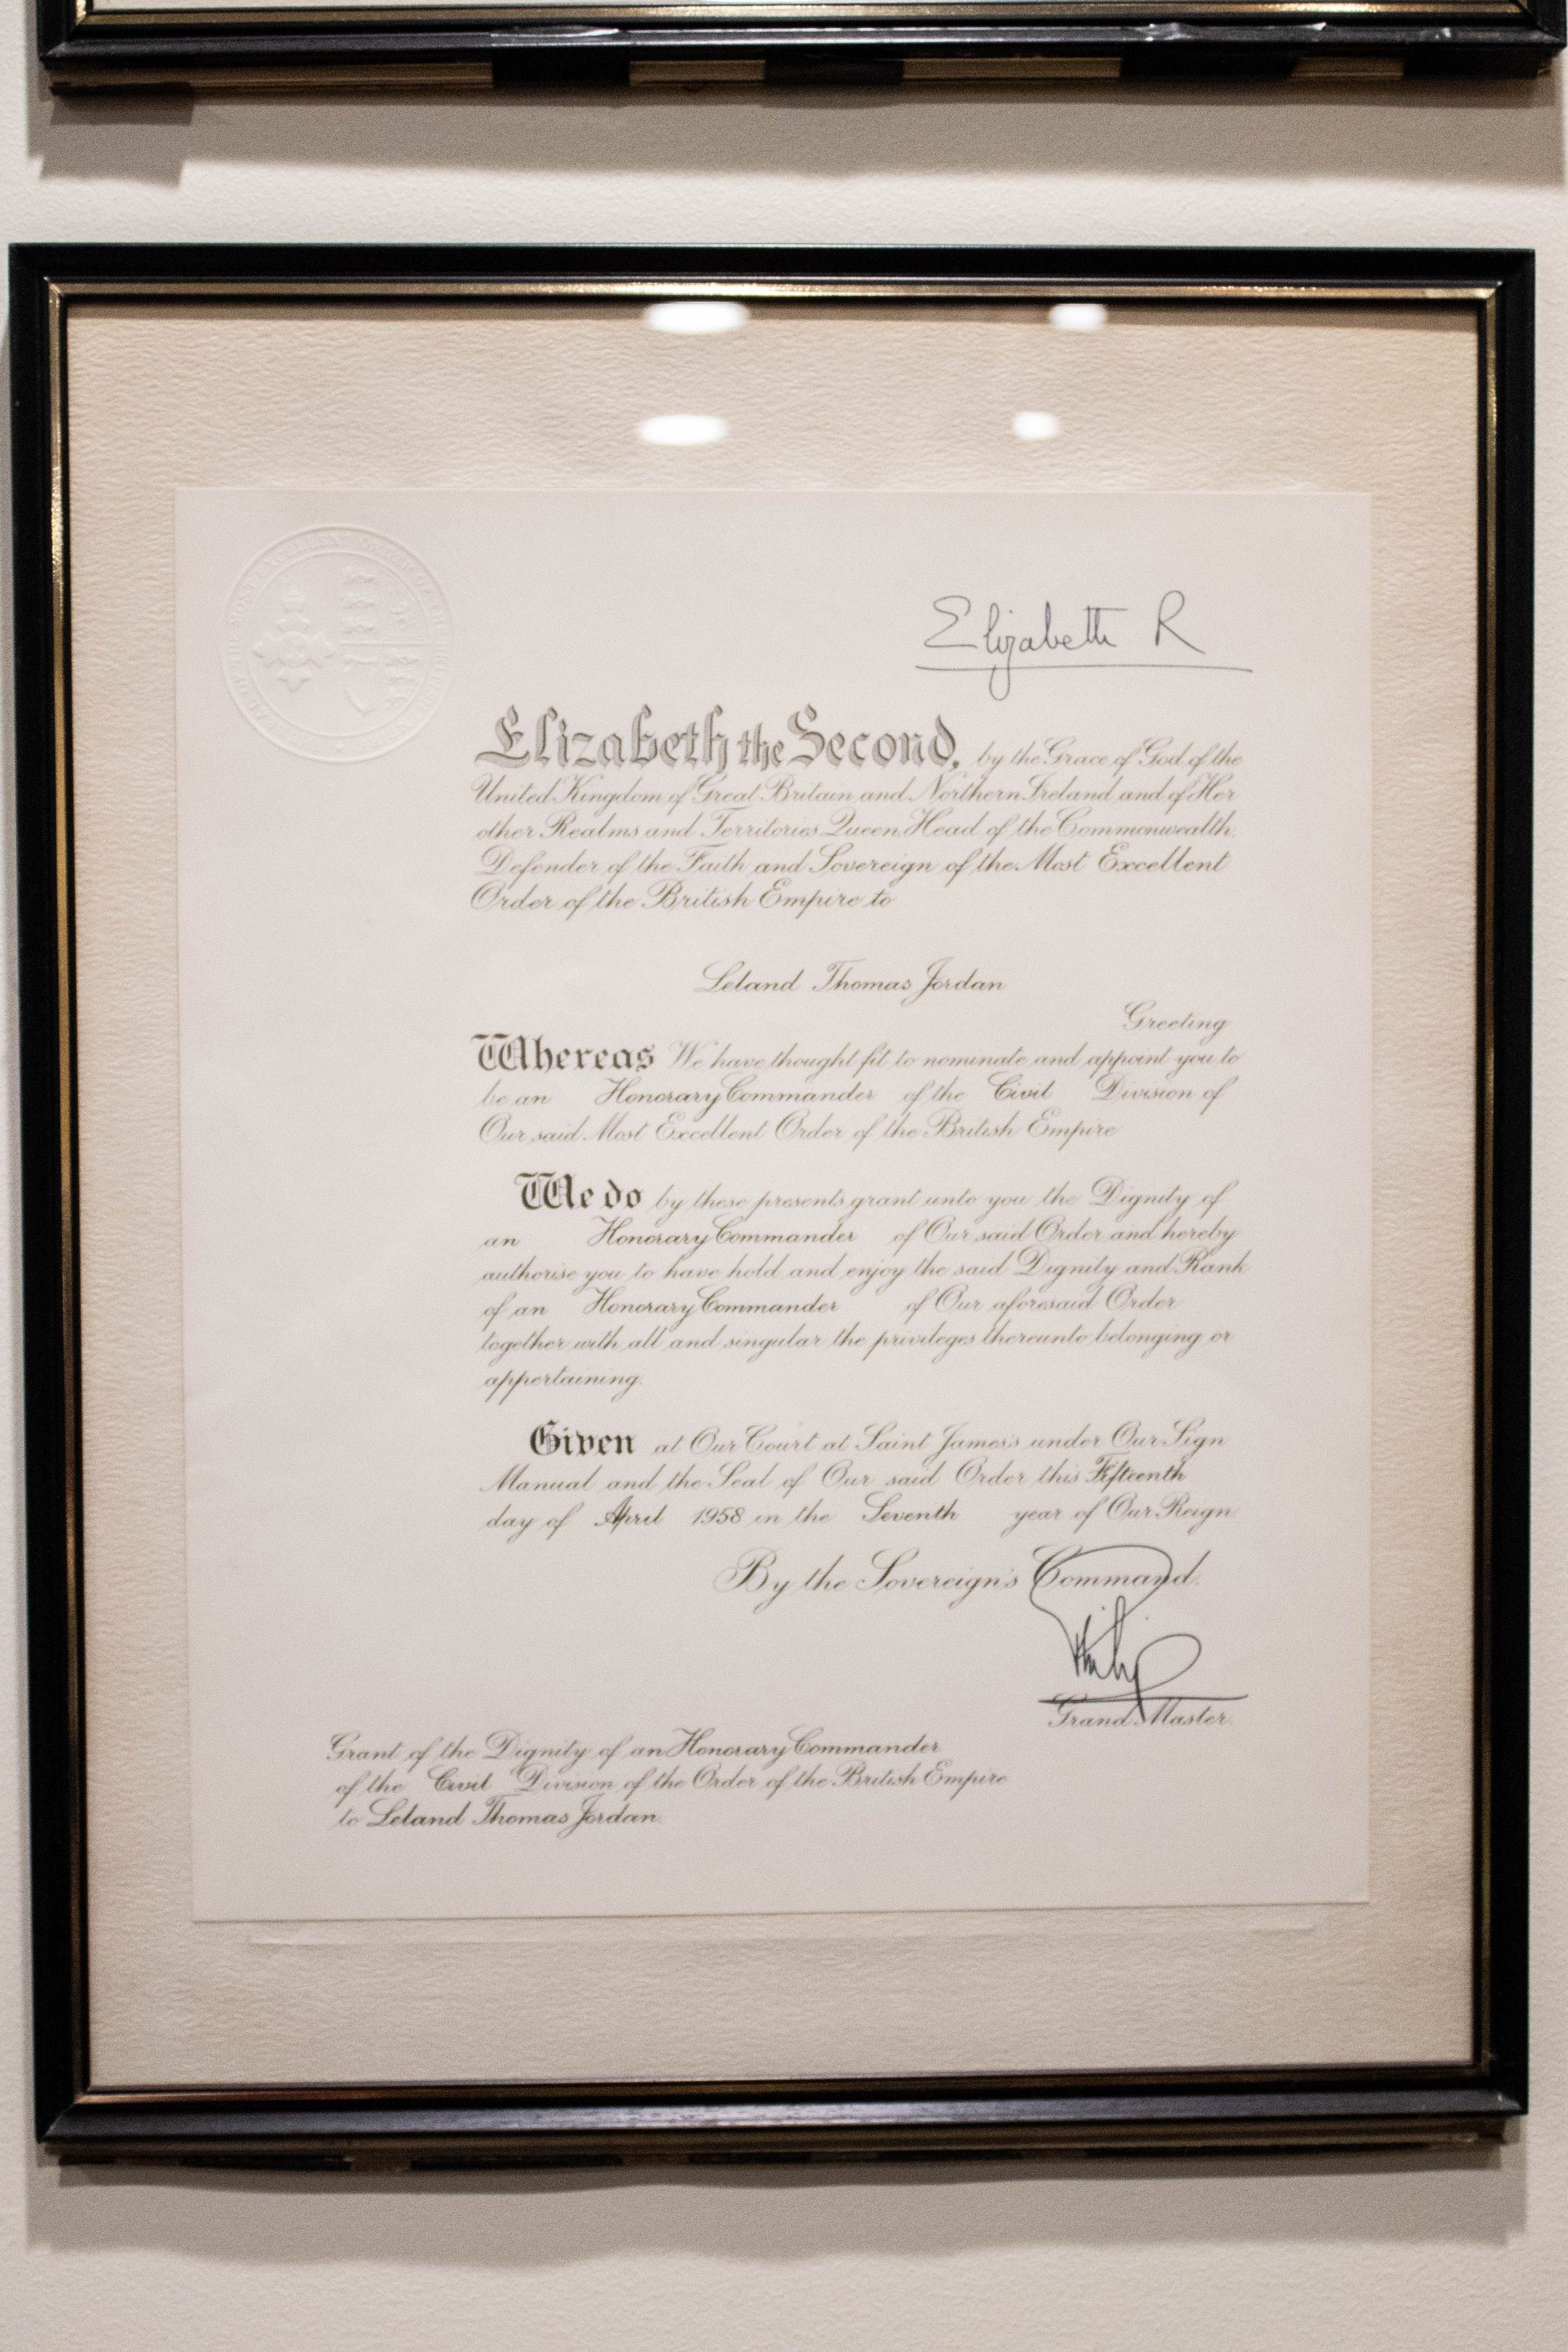 Elizabeth R
Elizabeth the Second, by the Grace of God of the
United Kingdom of Great Britain and Northern Ireland and of Her
other Realms and Territories Queen, Head of the Commonwealth,
Defender of the Faith and Sovereign of the Most Excellent
Order of the British Empire to
Leland Thomas Jordan
Greeting
Whereas We have thought fit to nominate and appoint you to
be an Honorary Commander of the Civil Division of
Our said Most Excellent Order of the British Empire
We do by these presents grant unto you the Dignity of
an Honorary Commander of Our said Order and hereby
authorise you to have hold and enjoy the said Dignity and Rank
of an Honorary Commander of Our aforesaid Order
together with all and singular the privileges thereunto belonging or
appertaining.
Given at Our Court at Saint James's under Our Sign
Manual and the Seal of Our said Order this Fifteenth
day of April 1958 in the Seventh year of Our Reign.
By the Sovereign's Command.
Philip
Grand Master.
Grant of the Dignity of an Honorary Commander
of the Civil Division of the Order of the British Empire
to Leland Thomas Jordan.